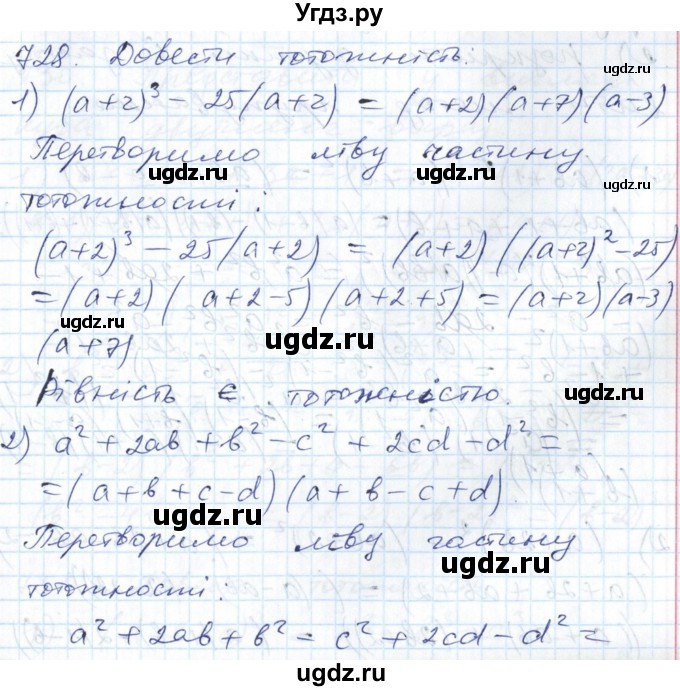 Угдз.ру
728. Довести тотожність:
1) (a+2)³ − 25(a+2) = (a+2)(a+7)(a−3)
Перетворимо ліву частину
тотожності:
(a+2)³ − 25(a+2) = (a+2)((a+2)²−25)
= (a+2)(a+2−5)(a+2+5) = (a+2)(a−3)
(a+7)
Рівність є тотожністю.
2) a² + 2ab + b² − c² + 2cd − d² =
= (a+b+c−d)(a+b−c+d)
Перетворимо ліву частину
тотожності:
a² + 2ab + b² = c² + 2cd − d² =
ugdz.ru
ugdz.ru
ugdz.ru
ugdz.ru
ugdz.ru
ugdz.ru
ugdz.ru
ugdz.ru
ugdz.ru
ugdz.ru
ugdz.ru
ugdz.ru
ugdz.ru
ugdz.ru